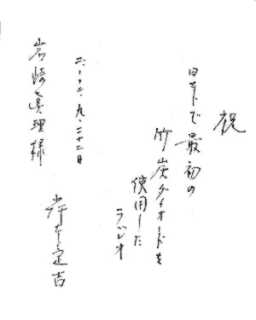 祝
日本で最初の
竹炭ダイオードを
使用した
ラジオ
二〇一二、九、二十二日
岩崎眞理様
岸本定吉